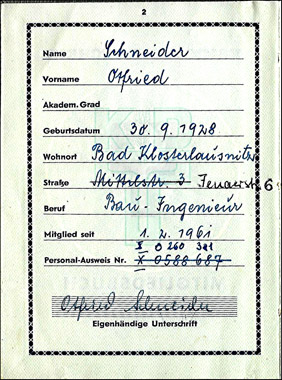 2
Name Schneider
Vorname Otfried
Akadem. Grad
Geburtsdatum 30.9.1928.
Wohnort Bad Klosterlausnitz
Straße Mittelstr. 3 Jenaerstr. 6
Beruf Bau-Ingenieur
Mitglied seit 1.2.1961
X 0260 321
Personal-Ausweis Nr. X 0588687
Otfried Schneider
Eigenhändige Unterschrift